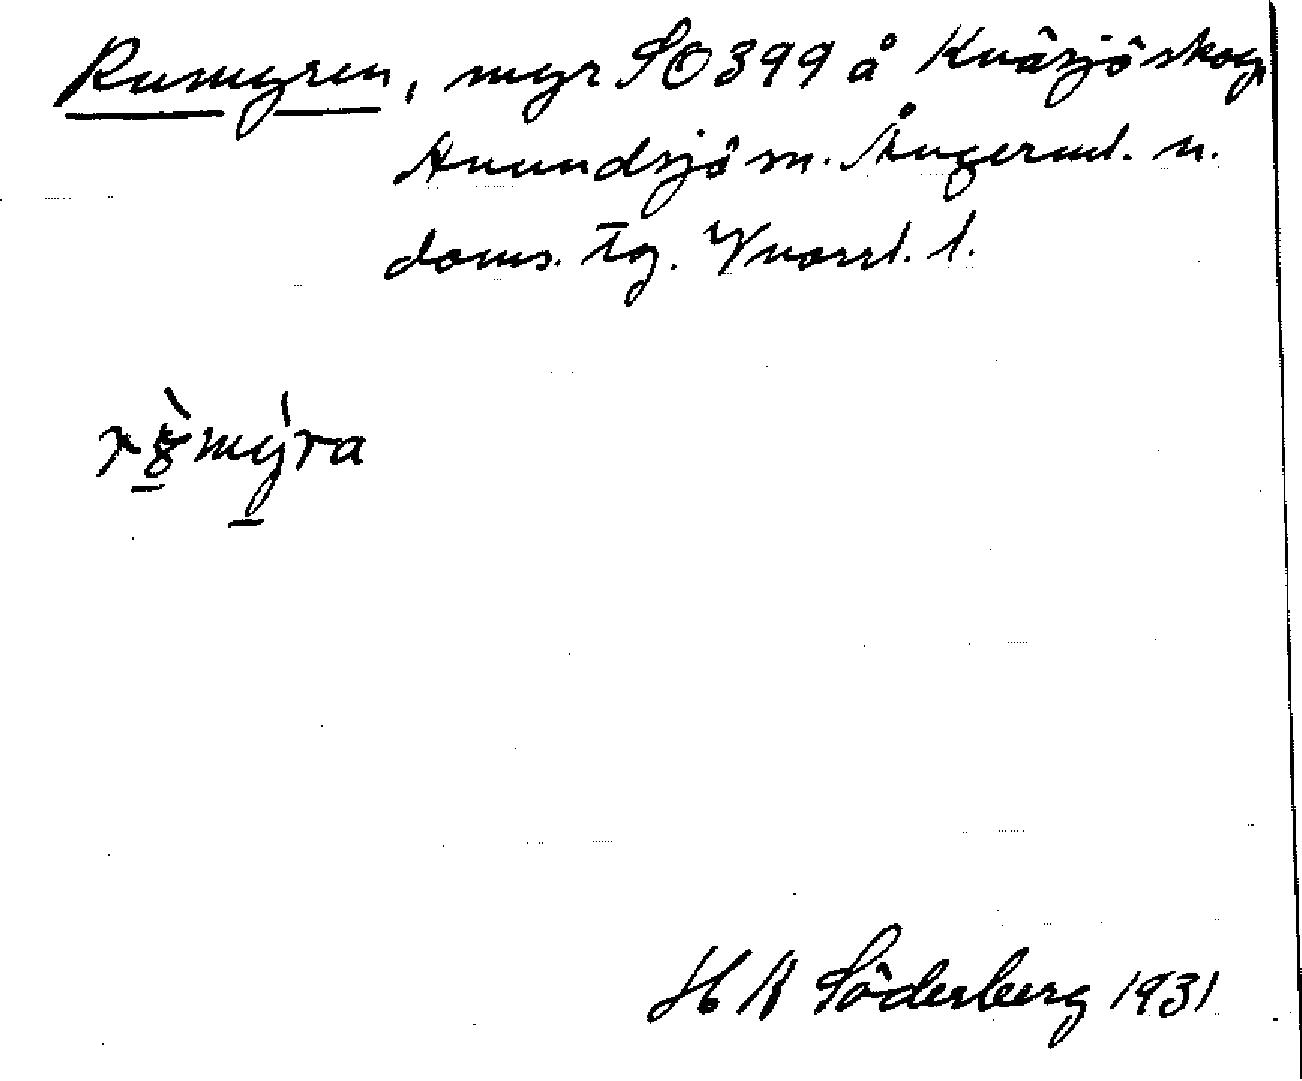 Rumyren, myr SO 399 å Kväsjöskog,
Anundsjö sn. Ångerml. n.
doms. tg. Vnorrl. l.
myra
H A Söderberg 1931